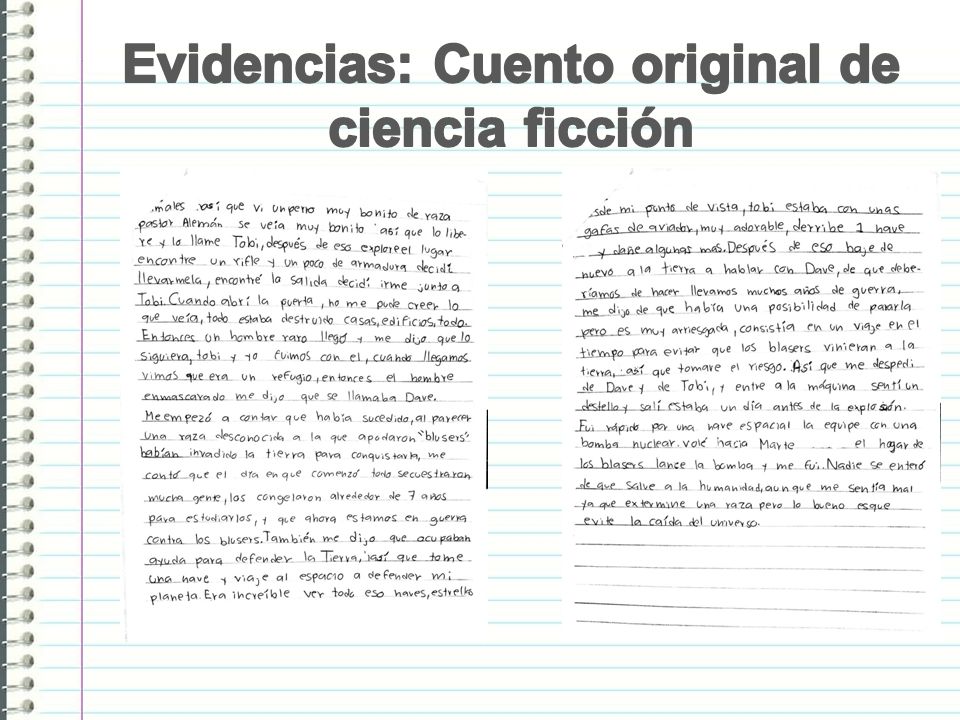 Evidencias: Cuento original de
ciencia ficción
males así que vi un perro muy bonito de raza
pastor Alemán se veía muy bonito así que lo libe-
re y lo llame Tobi, después de eso explore el lugar
encontre un rifle y un poco de armadura decidí
llevarmela, encontré la salida decidí irme junto a
Tobi. Cuando abrí la puerta, no me pude creer lo
que veía, todo estaba destruido casas, edificios, todo.
Entonces un hombre raro llegó y me dijo que lo
siguiera, tobi y yo fuimos con el, cuando llegamos
vimos que era un refugio, entonces el hombre
enmascarado me dijo que se llamaba Dave.
Me empezó a contar que había sucedido, al parecer
una raza desconocida a la que apodaron "blusers"
habían invadido la tierra para conquistarla, me
contó que el día en que comenzó todo secuestraron
mucha gente, los congelaron alrededor de 7 años
para estudiarlos, y que ahora estamos en guerra
contra los blusers. También me dijo que ocupaban
ayuda para defender la Tierra, así que tome
una nave y viaje al espacio a defender mi
planeta. Era increíble ver todo eso naves, estrellas
sde mi punto de vista, tobi estaba con unas
gafas de aviador, muy adorable, derribe 1 nave
y dañe algunas mas. Después de eso baje de
nuevo a la tierra a hablar con Dave, de que debe-
ríamos de hacer llevamos muchos años de guerra,
me dijo de que había una posibilidad de pararla
pero es muy arriesgada, consistía en un viaje en el
tiempo para evitar que los blasers vinieran a la
tierra, así que tomare el riesgo. Así que me despedi
de Dave y de Tobi, y entre a la máquina sentí un
destello y salí estaba un día antes de la explosión.
Fui rápido por una nave espacial la equipe con una
bomba nuclear. volé hacia Marte el hogar de
los blasers lance la bomba y me fui. Nadie se enteró
de que salve a la humanidad, aunque me sentía mal
ya que extermine una raza pero lo bueno es que
evite la caída del universo.